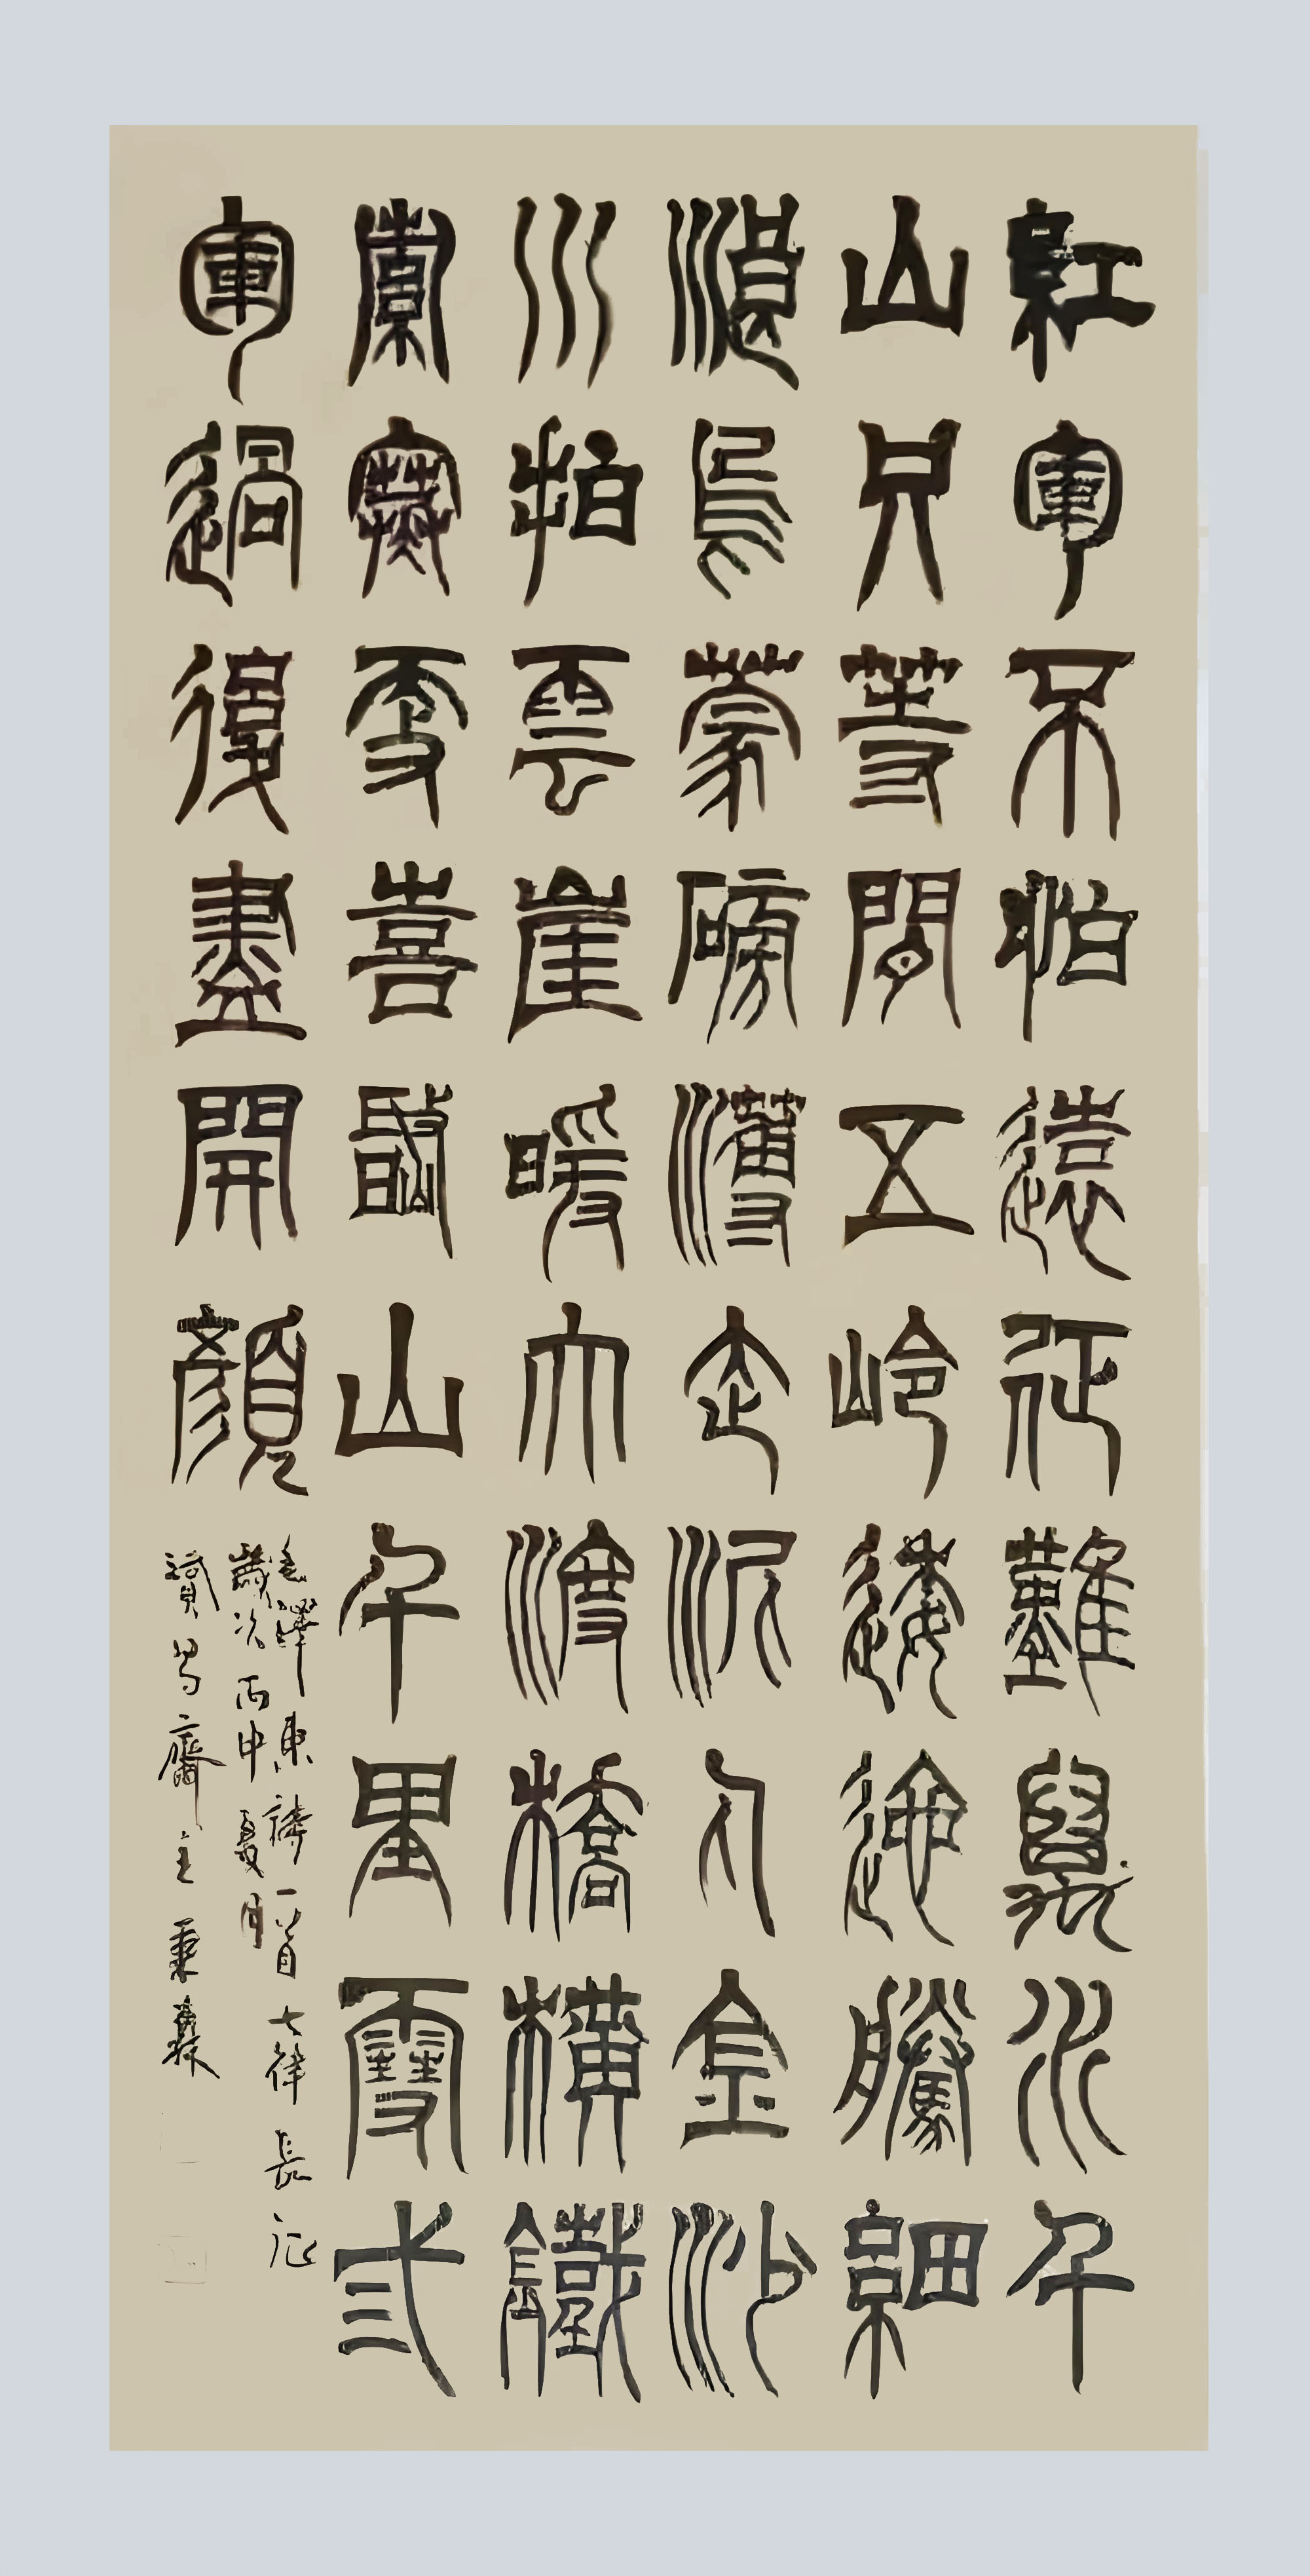 紅軍不怕遠征難萬水千
山只等閒五岭逶迤騰細
浪烏蒙磅礴走泥丸金沙
川拍雲崖暖大渡橋橫鐵
索寒更喜岷山千里雪弎
軍過後盡開顏
毛澤東詩一首七律長征
歲次丙申夏月
齋主秉